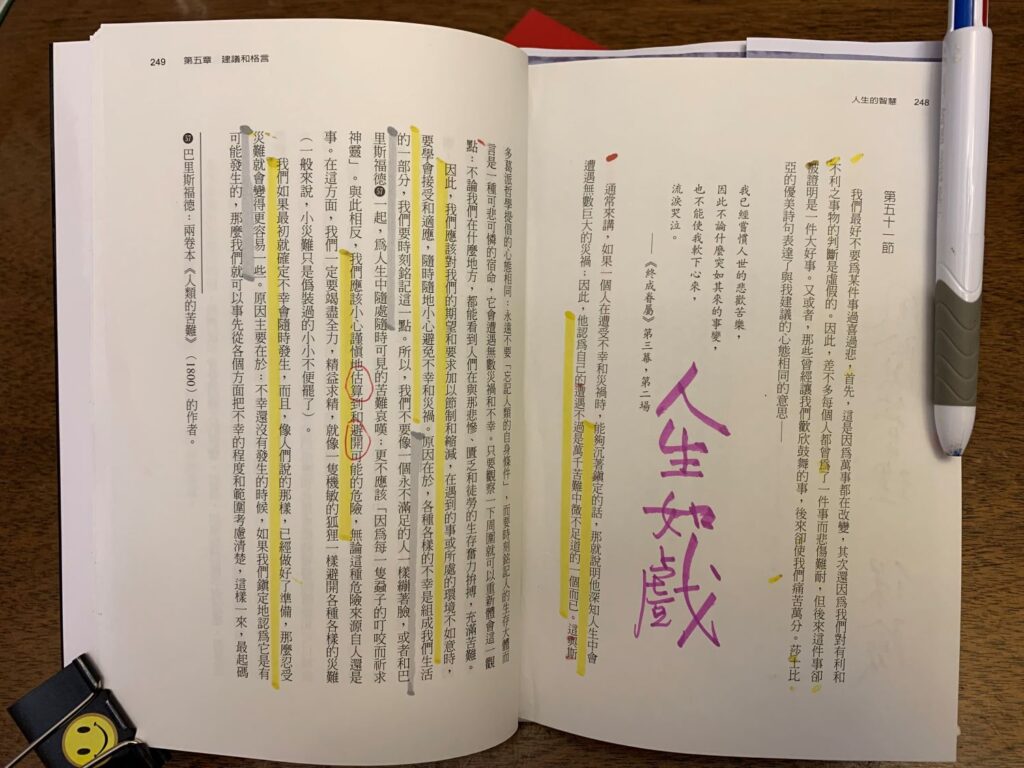 人生的智慧 248
第五十一節
我們最好不要為某件事過喜過悲,首先,這是因為萬事都在改變,其次還因為我們對有利和
不利之事物的判斷是虛假的。因此,差不多每個人都曾為了一件事而悲傷難耐,但後來這件事卻
被證明是一件大好事。又或者,那些曾經讓我們歡欣鼓舞的事,後來卻使我們痛苦萬分。莎士比
亞的優美詩句表達了與我建議的心態相同的意思——
我已經嘗慣人世的悲歡苦樂,
因此不論什麼突如其來的事變,
也不能使我軟下心來,
流淚哭泣。
——《終成眷屬》第三幕,第二場
人生如戲
通常來講,如果一個人在遭受不幸和災禍時,能夠沉著鎮定的話,那就說明他深知人生中會
遭遇無數巨大的災禍;因此,他認為自己的遭遇不過是萬千苦難中微不足道的一個而已。這與斯
249 第五章 建議和格言
多葛派哲學提倡的心態相同:永遠不要「忘記人類的自身條件」,而要時刻銘記人的生存大體而
言是一種可悲可憐的宿命,它會遭遇無數災禍和不幸。只要觀察一下周圍就可以重新體會這一觀
點:不論我們在什麼地方,都能看到人們在與那悲慘、匱乏和徒勞的生存奮力拚搏,充滿苦難。
因此,我們應該對我們的期望和要求加以節制和縮減,在遇到的事或所處的環境不如意時,
要學會接受和適應,隨時隨地小心避免不幸和災禍。原因在於,各種各樣的不幸是組成我們生活
的一部分,我們要時刻銘記這一點。所以,我們不要像一個永不滿足的人一樣繃著臉,或者和巴
里斯福德57一起,為人生中隨處隨時可見的苦難哀嘆;更不應該「因為每一隻蝨子的叮咬而祈求
神靈」。與此相反,我們應該小心謹慎地估算到和避開可能的危險,無論這種危險來源自人還是
事。在這方面,我們一定要竭盡全力,精益求精,就像一隻機敏的狐狸一樣避開各種各樣的災難
(一般來說,小災難只是偽裝過的小小不便罷了)。
我們如果最初就確定不幸會隨時發生,而且,像人們說的那樣,已經做好了準備,那麼忍受
災難就會變得更容易一些。原因主要在於:不幸還沒有發生的時候,如果我們鎮定地認為它是有
可能發生的,那麼我們就可以事先從各個方面把不幸的程度和範圍考慮清楚,這樣一來,最起碼
57 巴里斯福德:兩卷本《人類的苦難》(1800)的作者。